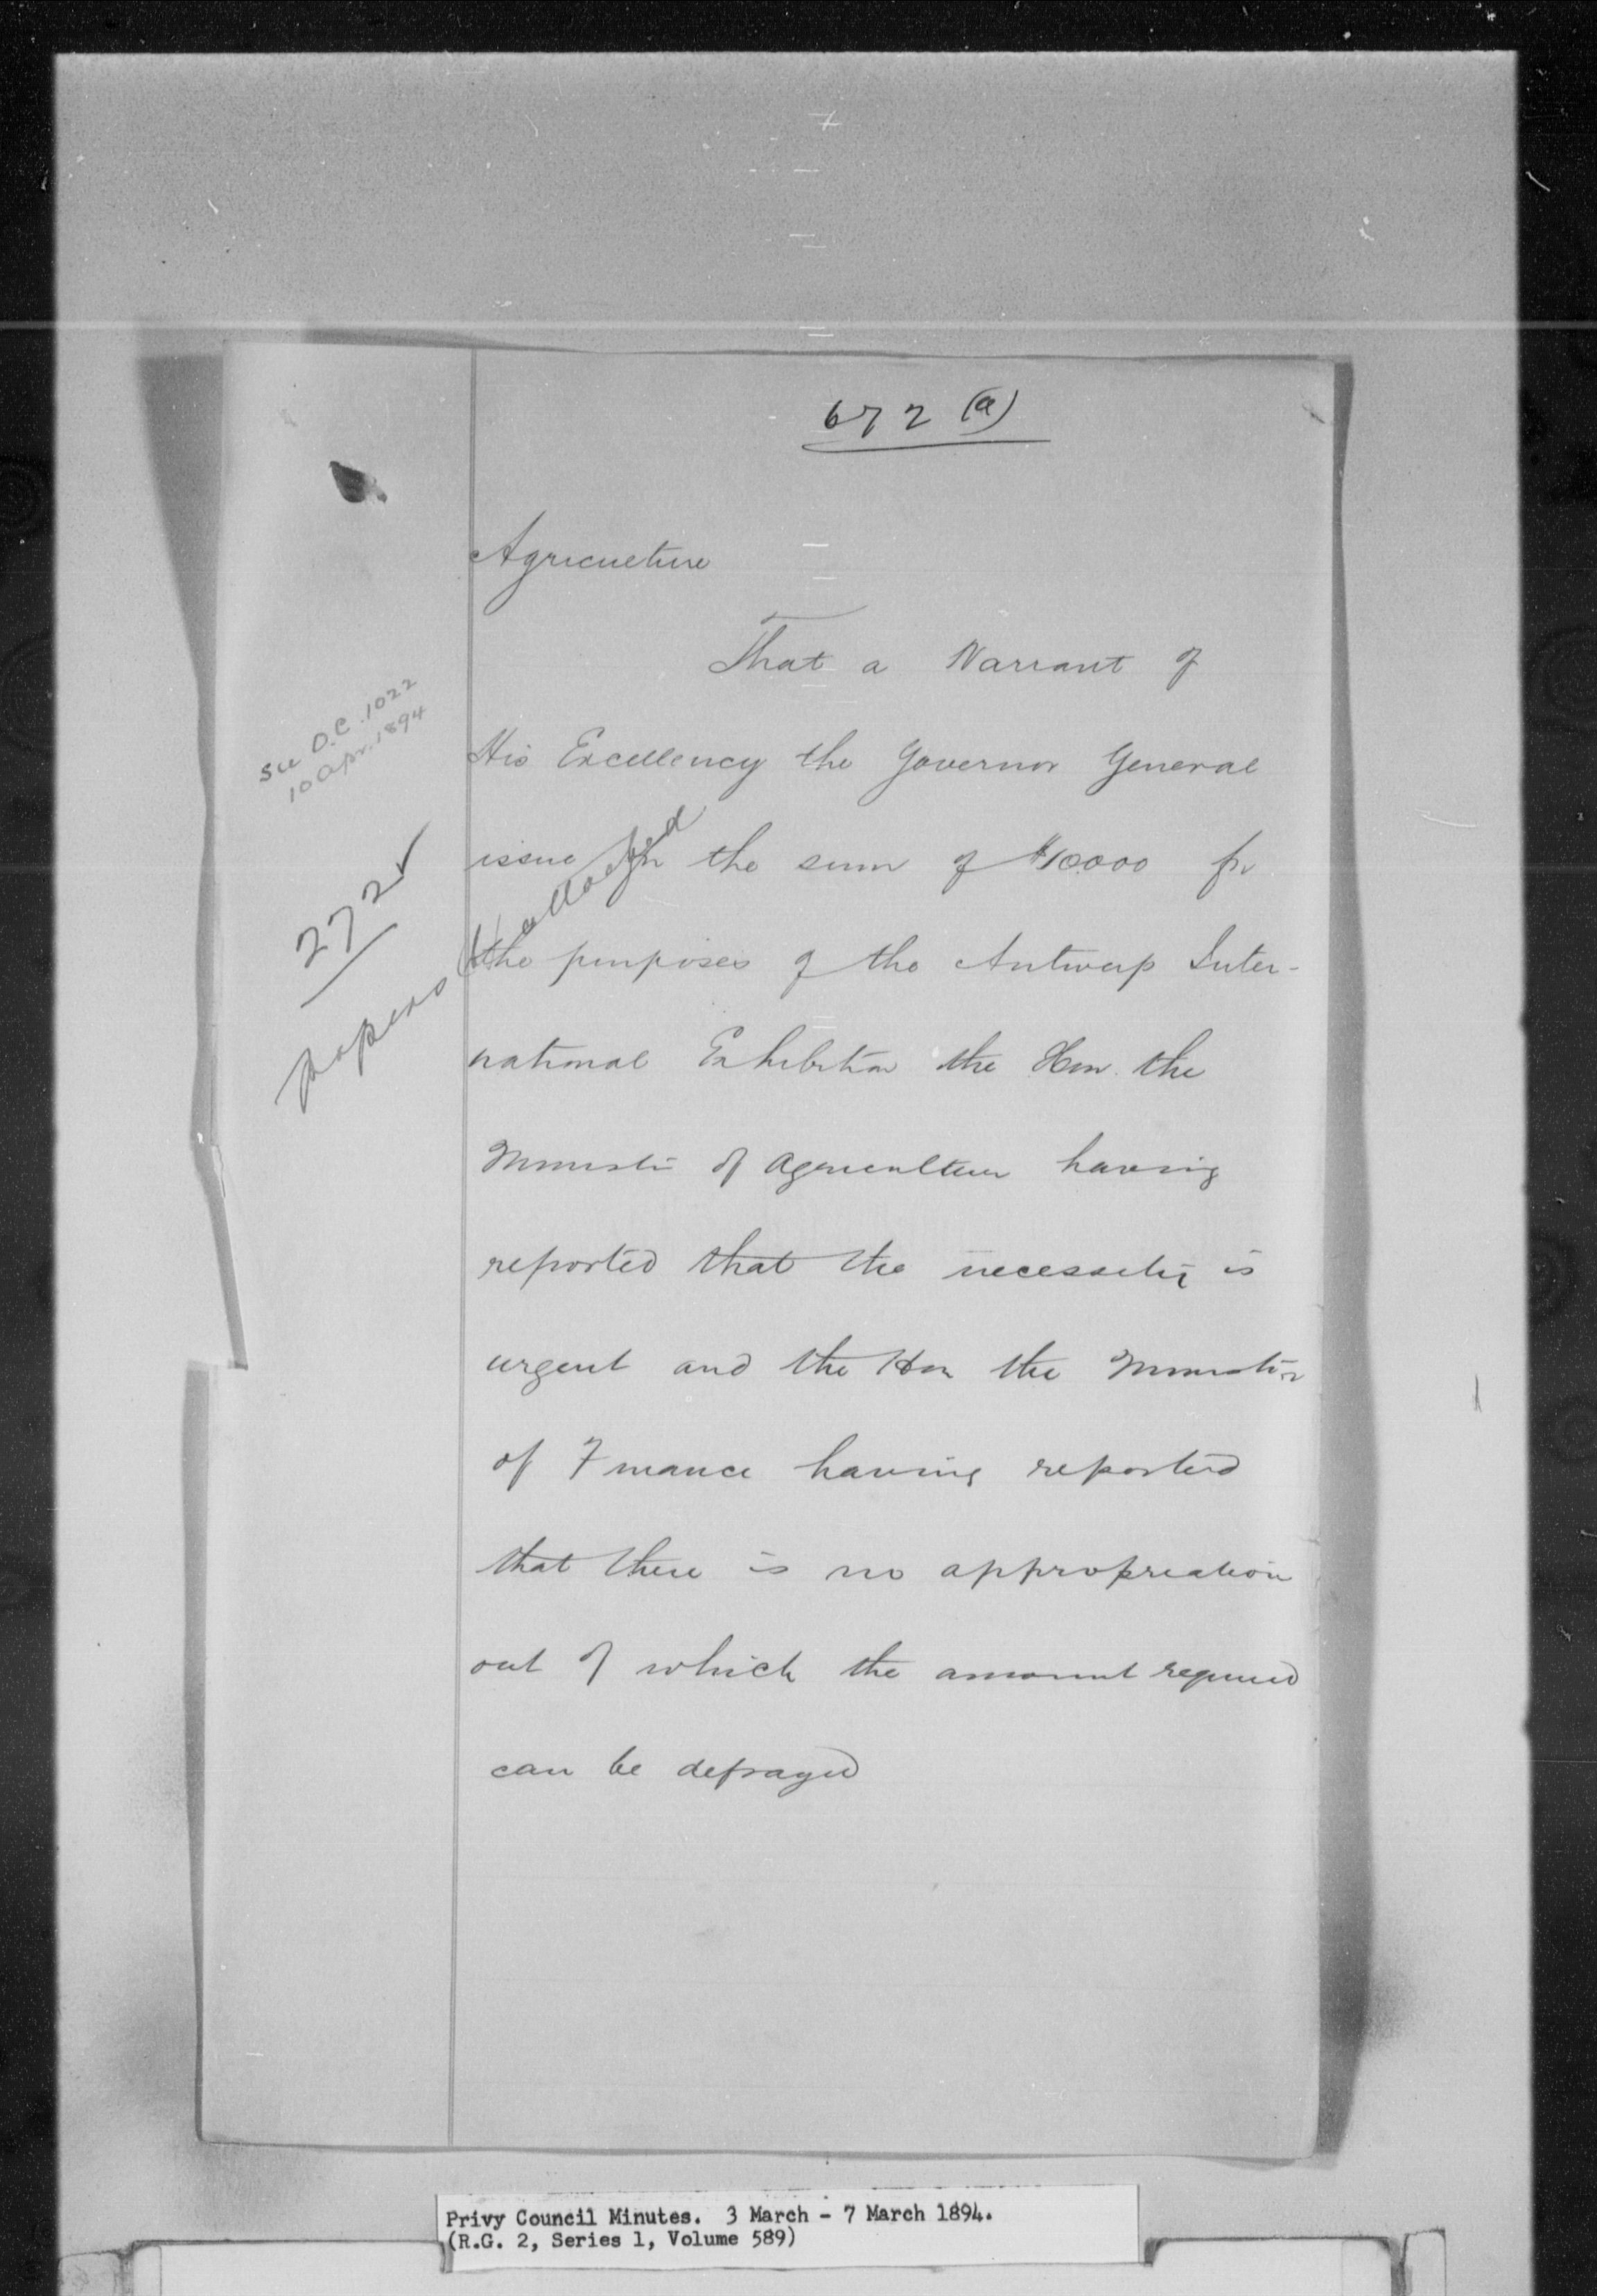 672 (a)
Agriculture
That a Warrant of
His Excellency the Governor General
issue for the sum of $10.000 for
the purposes of the Antwerp Inter-
national Exhibition the Hon. the
Minister of Agriculture having
reported that the necessity is
urgent and the Hon the Minister
of Finance having reported
that there is no appropriation
out of which the amount required
can be defrayed
See O.C. 1022
10 Apr. 1894
272 ✓
papers attached
Privy Council Minutes. 3 March - 7 March 1894.
(R.G. 2, Series 1, Volume 589)